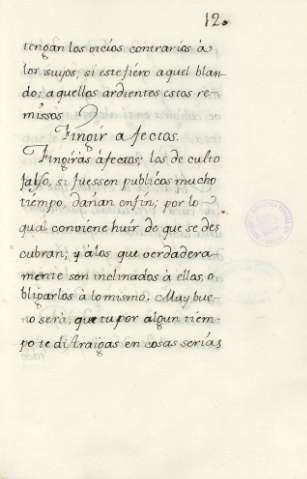 12.
tengan los vicios contrarios â
los suyos, si este fiero aquel blan-
do; a quellos ardientes estos re-
missos
Fingir a fectos.
Fingiràs âfectos; los de culto
falso, si fuessen publicos mucho
tiempo, dañan enfin; por lo
qual conviene huir de que se des
cubran; y â los que verdadera-
mente son inclinados à ellos, o-
bligarlos à lo mismo. Muy bue-
no serà, que tu por algun tiem-
po te distraigas en cosas serias,